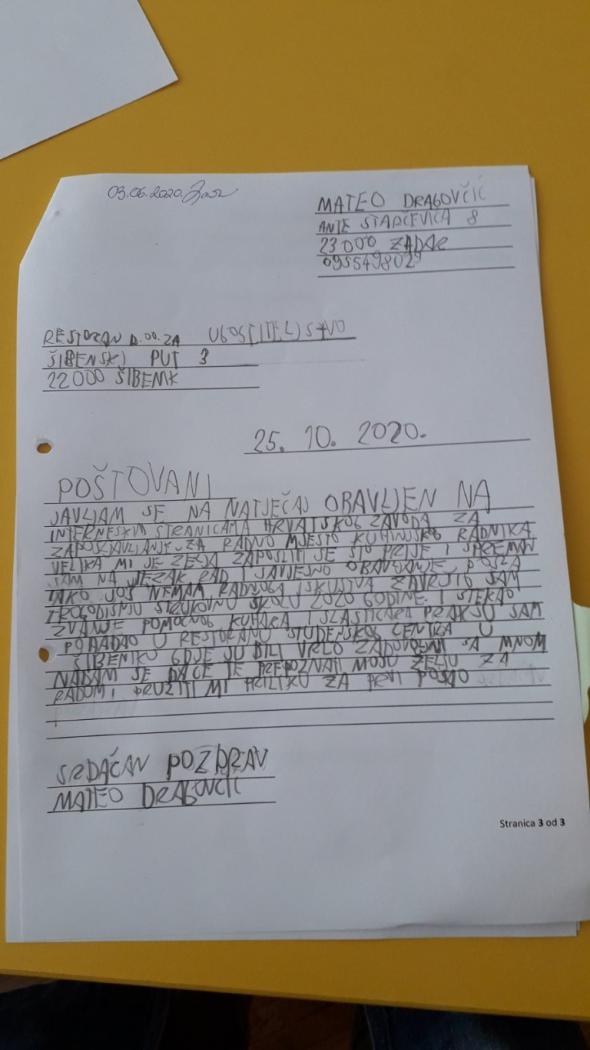 03.06.2020.
MATEO DRAGOVČIĆ
ANTE STARČEVIĆA 8
23000 ZADAR
0955498029
RESTORAN D.OO. ZA UGOSTITELJSTVO
ŠIBENSKI PUT 3
22000 ŠIBENIK
25. 10. 2020.
POŠTOVANI
JAVLJAM SE NA NATJEČAJ OBAVLJEN NA
INTERNESKIM STRANICAMA HRVATSKOG ZAVODA ZA
ZAPOŠLJAVANJE ZA RADNO MJESTO KUHINJSKOG RADNIKA
VELIKA MI JE ŽELJA ZAPOSLITI SE ŠTO PRIJE I SPREMAN
SAM NA TEŽAK RAD I SAVJESNO OBAVLJANJE POSLA
IAKO JOŠ NEMAM RADNOGA ISKUSTVA ZAVRŠIO SAM
TROGODIŠNJU STRUKOVNU ŠKOLU 2020 GODINE. I STEKAO
ZVANJE POMOĆNOG KUHARA I SLASTIČARA PRAKSU SAM
POHAĐAO U RESTORANU STUDENSKOG CENTRA U
ŠIBENIKU GDJE SU BILI VRLO ZADOVOLJNI SA MNOM
NADAM SE DA ĆETE PREPOZNATI MOJU ŽELJU ZA
RADOM I PRUŽITI MI PRILIKU ZA PRVI POSAO
SRDAČAN POZDRAV
MATEO DRAGOVČIĆ
Stranica 3 od 3